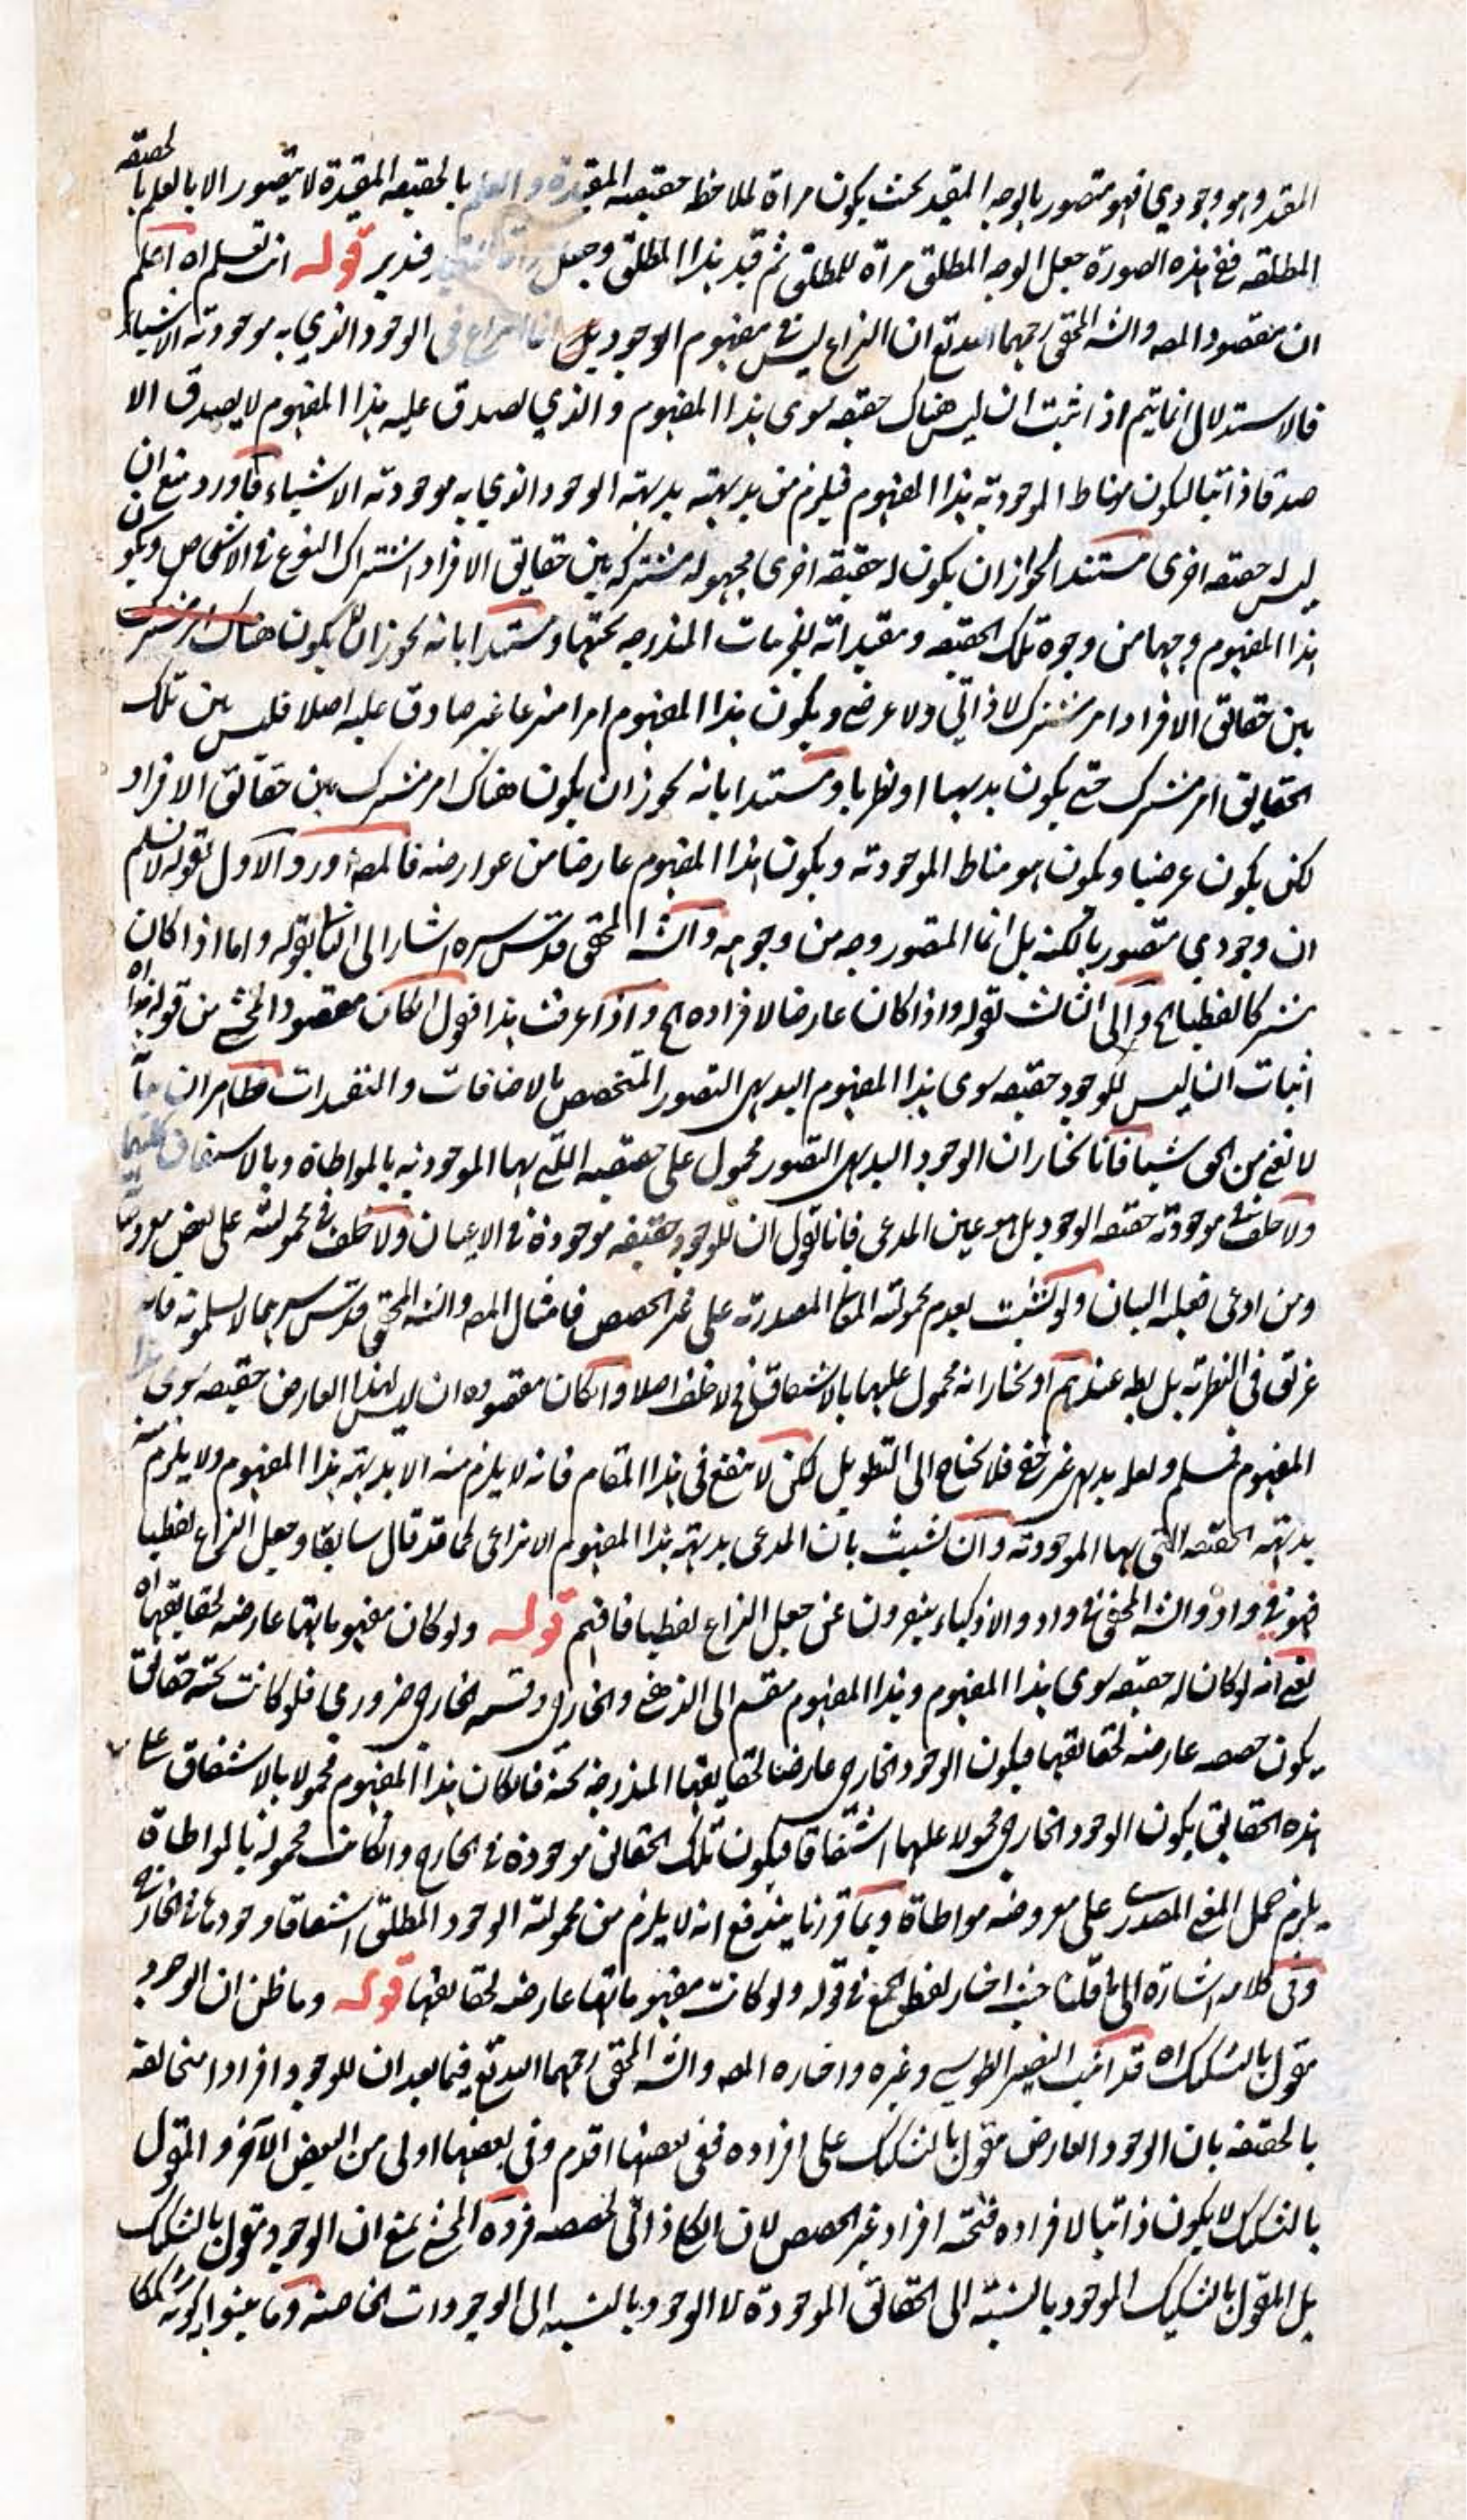 المقيد وهو وجودي فهو متصور بالوجه المقيد بحيث يكون مرآة لملاحظة حقيقته المقيدة و العلم بالحقيقة المقيدة لا يتصور الا بالعلم بالحقيقة
المطلقة ففي هذه الصورة جعل الوجه المطلق مرآة للمطلق ثم قيد بهذا المطلق وجعل فتدبر قوله انت تعلم اه اعلم
ان مقصود المصه والشه المحقق رحمهما الله تع ان النزاع ليس في مفهوم الوجود بل انما النزاع في الوجود الذي به موجودية الاشياء
فالاستدلال انما يتم اذا ثبت ان ليس هناك حقيقة سوى هذا المفهوم و الذي يصدق عليه هذا المفهوم لا يصدق الا
صدقا ذاتيا ليكون مناط الموجودية هذا المفهوم فيلزم من بديهته بديهة الوجود الذي به موجودية الاشياء فأورد منع ان
ليس له حقيقة اخرى مستندا لجواز ان يكون له حقيقة اخرى مجهولة مشتركة بين حقايق الافراد اشتراك النوع في الاشخاص ويكون
هذا المفهوم وجها من وجوه تلك الحقيقة ومقيداته للجزئيات المندرجة تحتها ومستندا بانه يجوز ان لا يكون هناك امر مشترك
بين حقائق الافراد امر مشترك لا ذاتي ولا عرضي ويكون هذا المفهوم امرا منتزعا غير صادق عليه اصلا فليس بين تلك
الحقايق امر مشترك حتى يكون بديهيا او نظريا ومستندا بانه يجوز ان يكون هناك امر مشترك بين حقائق الافراد
لكن يكون عرضيا ويكون هو مناط الموجودية ويكون هذا المفهوم عارضا من عوارضه فالمصه اورد الاول بقوله لا نسلم
ان وجودي متصور بالكنه بل انما المتصور وجه من وجوهه والشه المحقق قدس سره اشار الى الثاني بقوله واما اذا كان
مشتركا لفظيا الخ والى الثالث بقوله واذا كان عارضا لافراده الخ واذا عرفت هذا فنقول ان كان مقصود المحشي من قوله هذا اه
اثبات ان ليس للوجود حقيقة سوى هذا المفهوم البديهي التصور المتخصص بالاضافات و التقييدات فظاهر ان
لا يغني من الحق شيئا فانا نختار ان الوجود البديهي التصور محمول على حقيقته التي بها الموجودية بالمواطاة وبالاشتقاق كليهما
ولا خلف في موجودية حقيقة الوجود بل هو عين المدعى فانا نقول ان للوجود حقيقة موجودة في الاعيان ولا خلف في محمولية على بعض معروضاته
ومن ادعى فعليه البيان ولو تشبث بعدم محمولية المعاني المصدرية على غير الحصص فامثال المصه والشه المحقق قدس سرهما لا يسلمونه فانه
غريق في النظرية بل بطه عندهم او نختار انه محمول عليها بالاشتقاق فلا خلف اصلا وان كان مقصوده ان ليس لهذا العارض حقيقة سوى هذا
المفهوم فمسلم ولعله بديهي غير خفي فلا يحتاج الى التطويل لكن لا ينفع في هذا المقام فانه لا يلزم منه الا بديهة هذا المفهوم ولا يلزم منه
بديهة الحقيقة التي بها الموجودية وان تشبث بان المدعى بديهة هذا المفهوم الانتزاعي كما قد قال سابقا وجعل النزاع لفظيا
فهو في واد والشه المحقق في واد والاذكياء ينفرون عن جعل النزاع لفظيا فافهم قوله ولو كان مفهوماتها عارضة لحقايقها اه
يعني انه لو كان له حقيقة سوى هذا المفهوم وهذا المفهوم منقسم الى الذهني والخارجي وقسمه الخارجي ضروري فلو كانت تحته حقائق
يكون حصصه عارضة لحقائقها فيكون الوجود الخارجي عارضا لحقايقها المندرجة تحته فان كان هذا المفهوم محمولا بالاشتقاق على
هذه الحقائق يكون الوجود الخارجي محمولا عليها اشتقاقا فيكون تلك الحقائق موجودة في الخارج وان كانت محمولة بالمواطاة
يلزم حمل المعنى المصدري على معروضه مواطاة وبما قررنا يندفع انه لا يلزم من محمولية الوجود المطلق اشتقاقا وجودها في الخارج
وفي كلامه اشارة الى ما قلنا حيث اختار لفظ الجمع في قوله ولو كانت مفهوماتها عارضة لحقايقها قوله وما ظن ان الوجود
مقول بالتشكيك اه قد اثبت النصير الطوسي وغيره واختاره المصه والشه المحقق رحمهما الله تع فيما بعد ان للوجود افرادا متخالفة
بالحقيقة بان الوجود العارض مقول بالتشكيك على افراده ففي بعضها اقدم وفي بعضها اولى من البعض الآخر والمقول
بالتشكيك لا يكون ذاتيا لافراده فتحته افراد غير الحصص لان الكلي ذاتي لحصصه فرده المحشي بمنع ان الوجود مقول بالتشكيك
بل المقول بالتشكيك الموجود بالنسبة الى الحقائق الموجودة لا الوجود بالنسبة الى الوجودات الخاصة وما بينوا به كونه مشككا